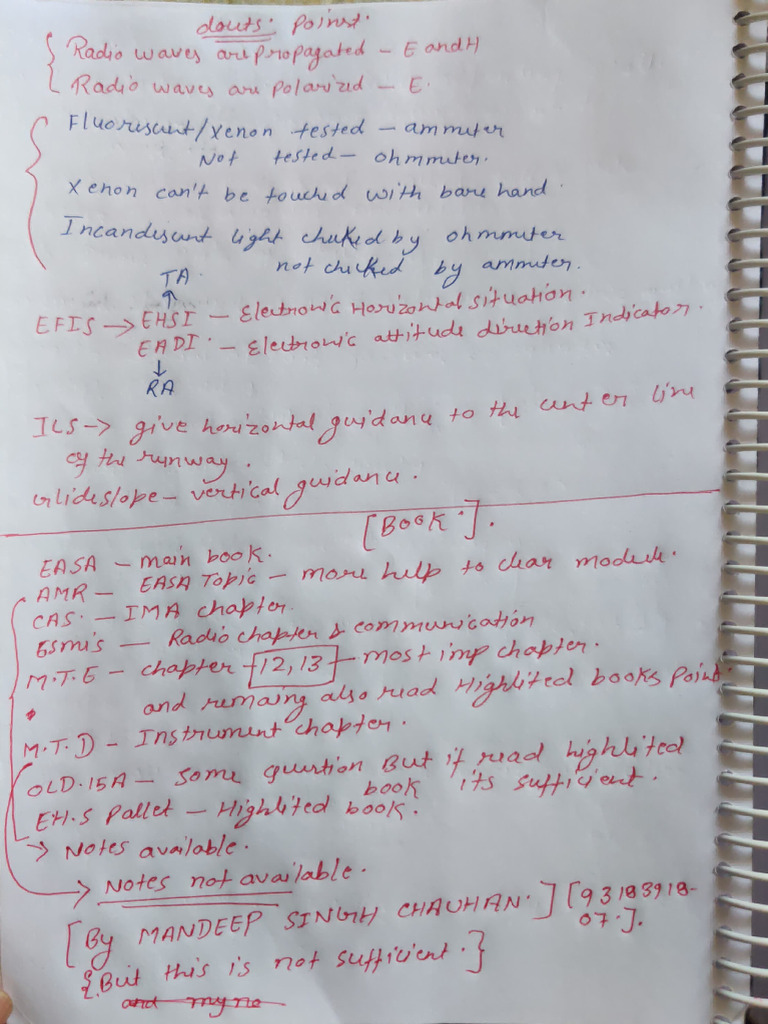 douts: Point.
Radio waves are propagated - E and H
Radio waves are polarized - E.
Fluoriscent/xenon tested - ammuter
Not tested - ohmmuter.
Xenon can't be touched with bare hand.
Incandiscent light chuked by ohmmuter
not chuked by ammuter.
TA.
↑
EFIS → EHSI - Electronic Horizontal situation.
EADI. - Electronic attitude direction Indicator.
↓
RA
ILS → give horizontal guidance to the center line
of the runway.
Glideslope - vertical guidance.
[BOOK.].
EASA - main book.
AMR - EASA Topic - more help to clear module.
CAS. - IMA chapter.
Esmis - Radio chapter & communication
M.T.E - chapter - 12,13 - most imp chapter.
and remaing also read Highlited books Point.
M.T.D - Instrument chapter.
OLD.15A - some question But if read highlited
book its sufficient.
EH.S Pallet - Highlited book.
→ Notes available.
→ Notes not available.
[By MANDEEP SINGH CHAUHAN.] [93183918-
07.].
{But this is not sufficient.}
and my no